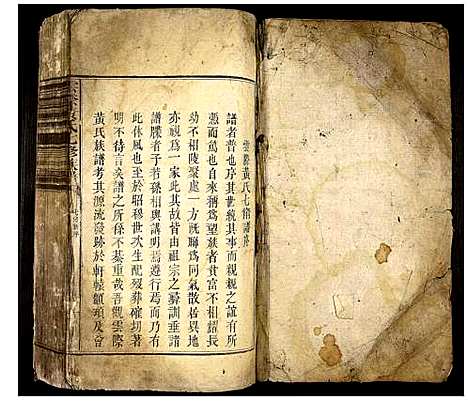 雲際黃氏七修譜序
譜者普也序其世統其事而親親之誼有所
憑而篤也自來稱為望族者貧富不相諂長
幼不相陵聚處一方既聯為同氣散居異地
亦視為一家此其故皆由祖宗之彝訓垂諸
譜牒者子若孫相與講明焉遵行焉而乃有
此休風也至於昭穆世次生配裂葬確切著
明不待言矣譜之所係不綦重哉吾觀雲際
黃氏族譜考其源流發跡於軒轅顓頊及啓